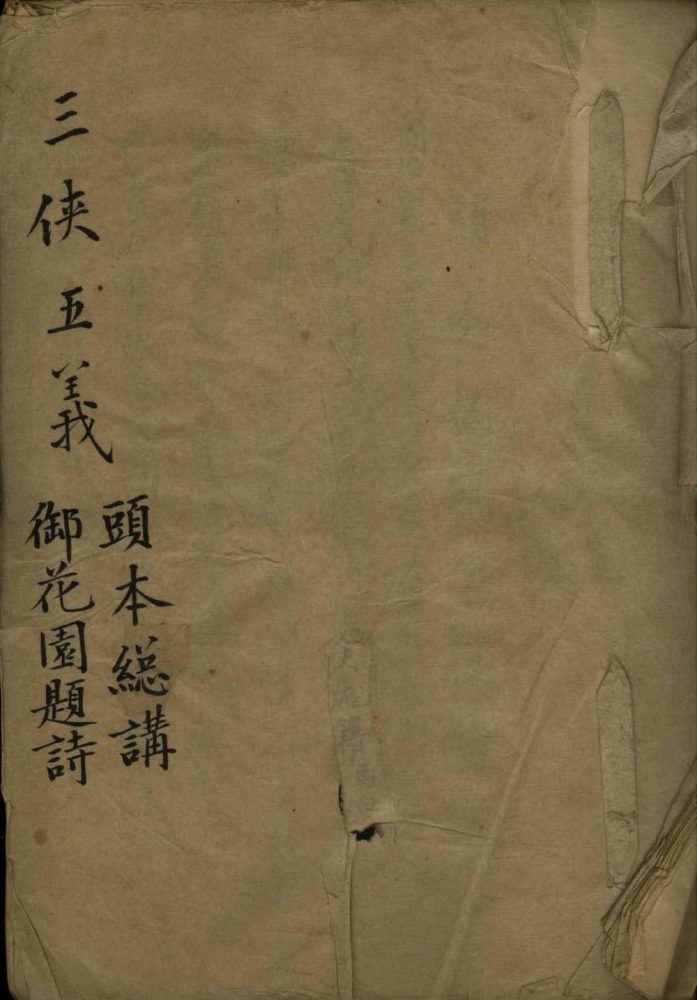 三俠五義
頭本緫講
御花園題詩